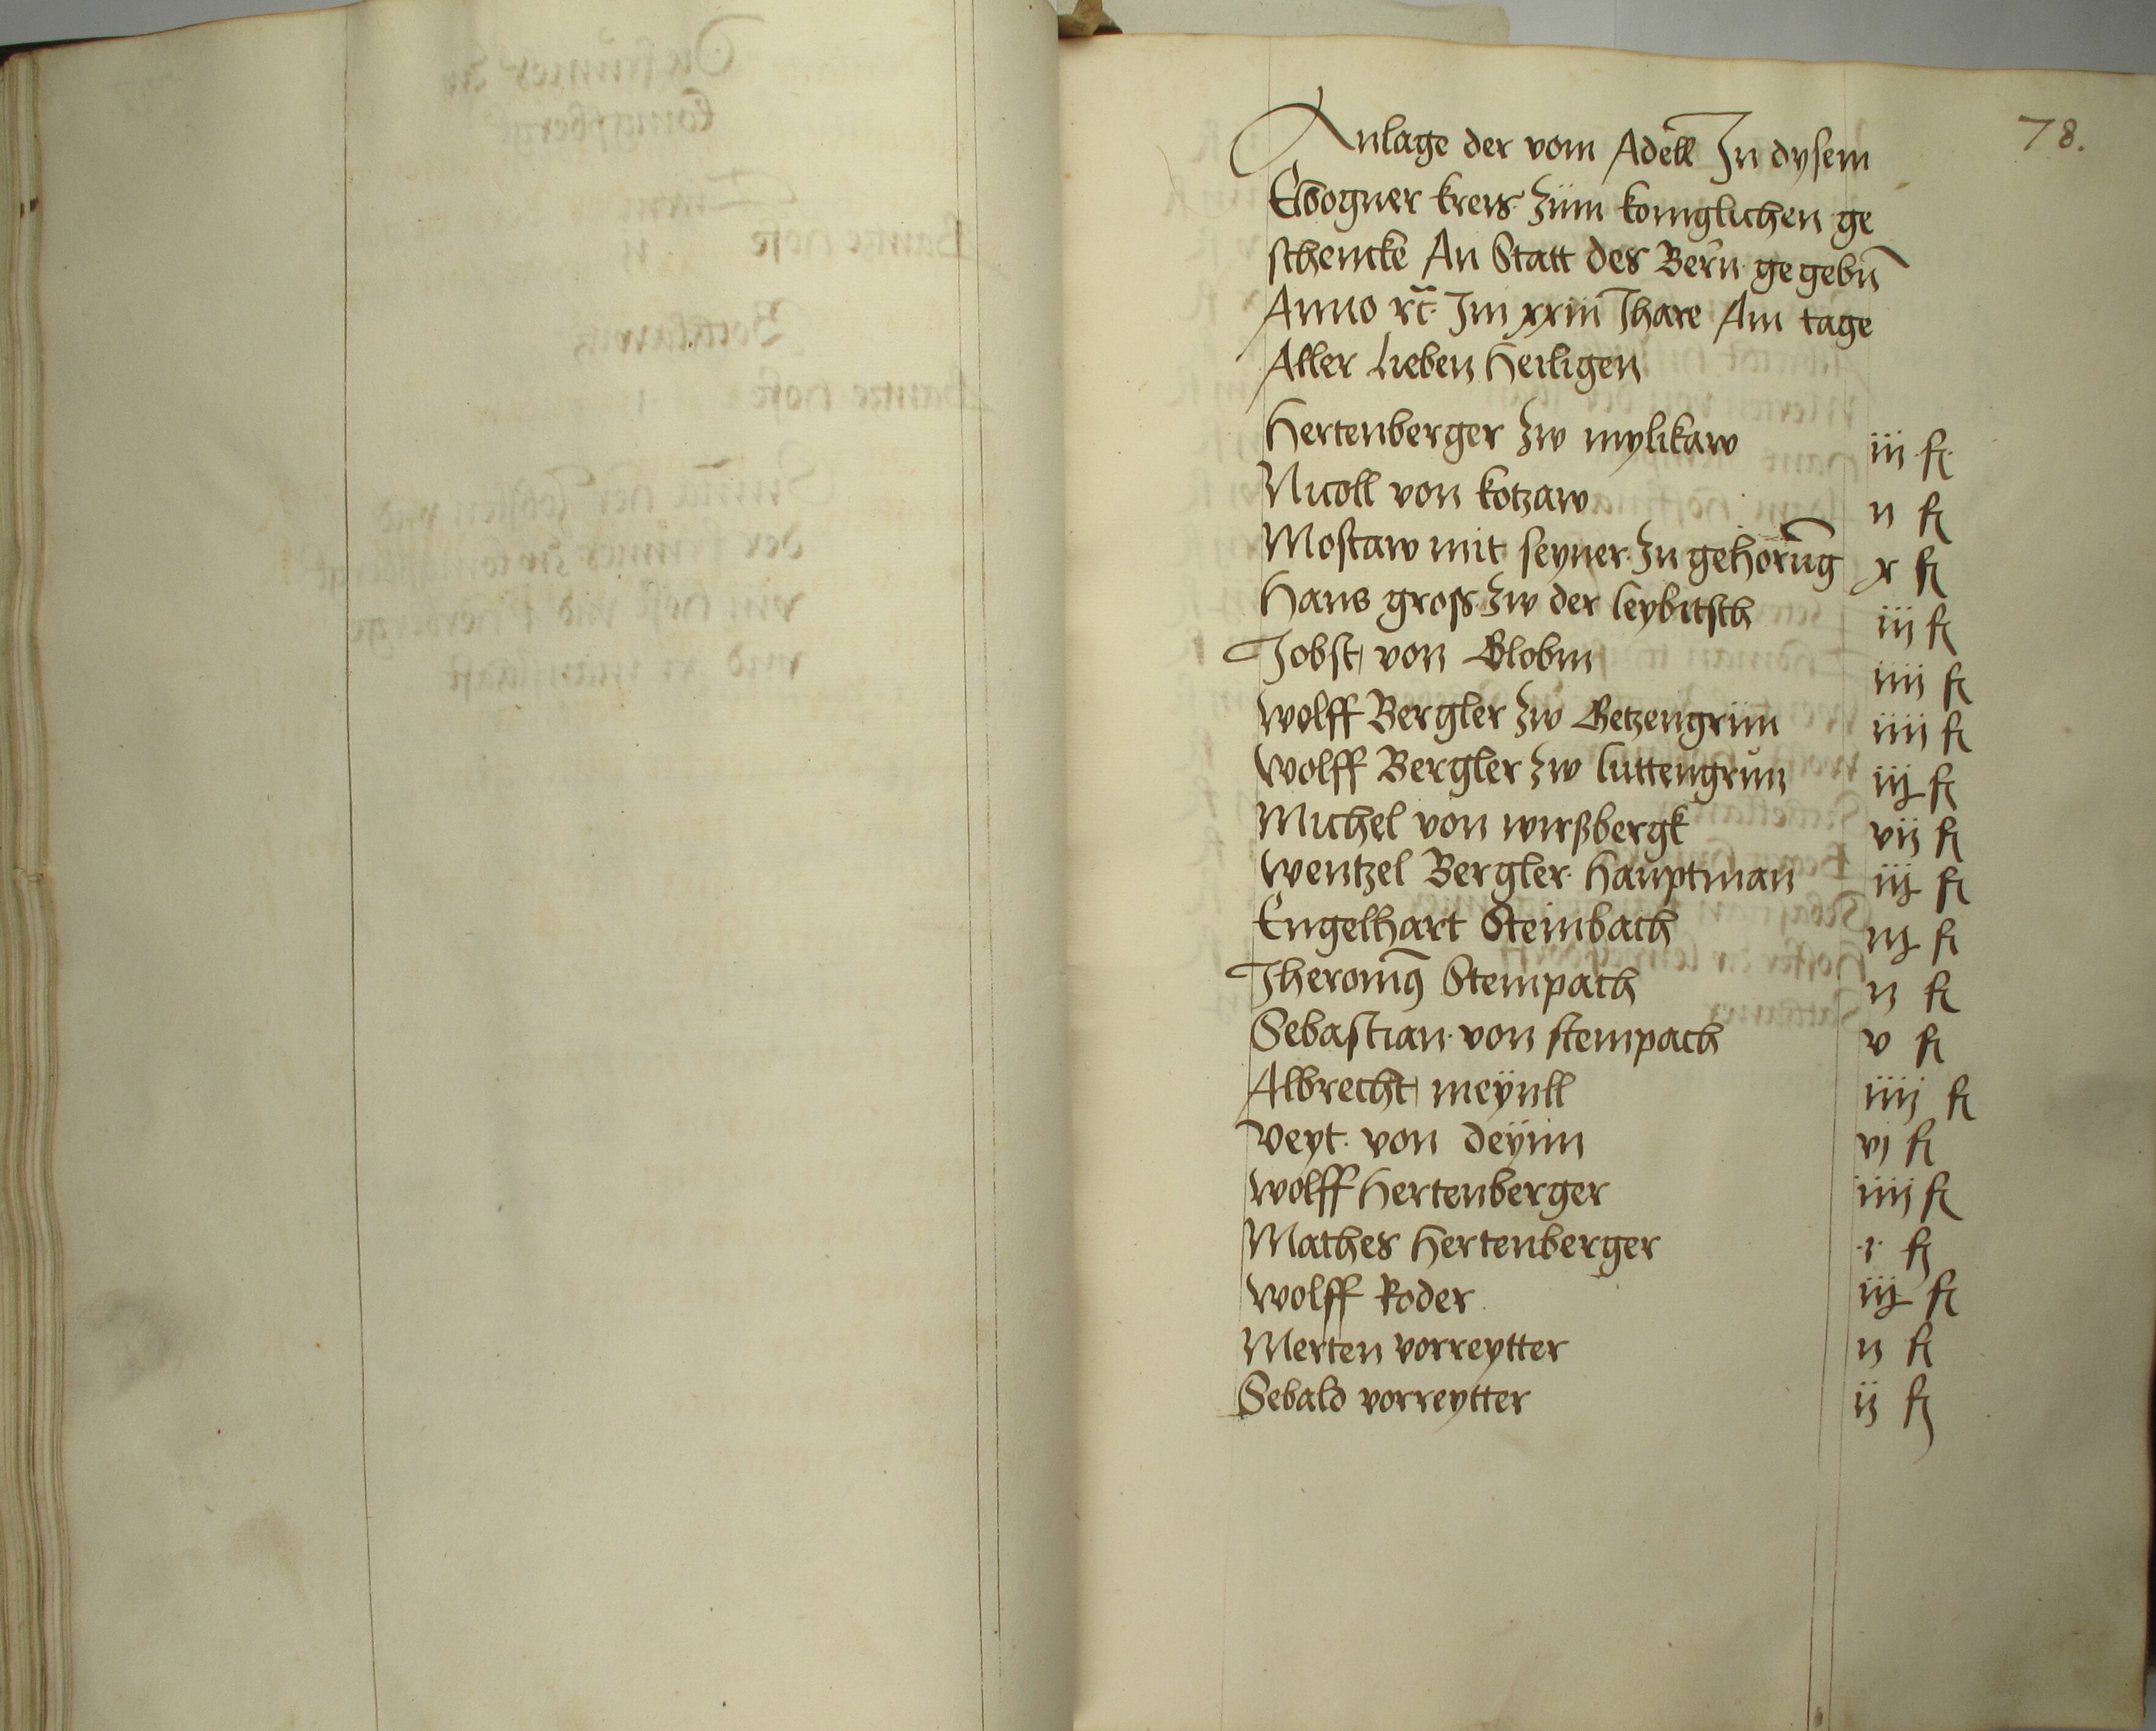 78.
Anlage der vom Adell In dysem
Elbogner kreis zum koniglichen ge
schencke An Statt des Bern gegebn
Anno rc Im xxiii Jhare Am tage
Aller Lieben Heiligen
Hertenberger zw mylikaw iii ß
Nicoll von kotzaw ii ß
Mostaw mit seyner zu gehorung x ß
Hans gross zw der leybitsch iij ß
Jobst von Globin iiij ß
Wolff Bergler zw Getzengrün iiij ß
Wolff Bergler zw luttengrün iij ß
Michel von wirßbergk vij ß
Wentzel Bergler hauptman iij ß
Engelhart Steinbach iij ß
Jheronimus Steinpach ii ß
Sebastian von steinpach v ß
Albrecht meÿnll iiij ß
Veyt von deÿm vj ß
Wolff Hertenberger iiij ß
Mathes Hertenberger i ß
Wolff Roder iij ß
Merten vorreytter ij ß
Sebald vorreytter ij ß